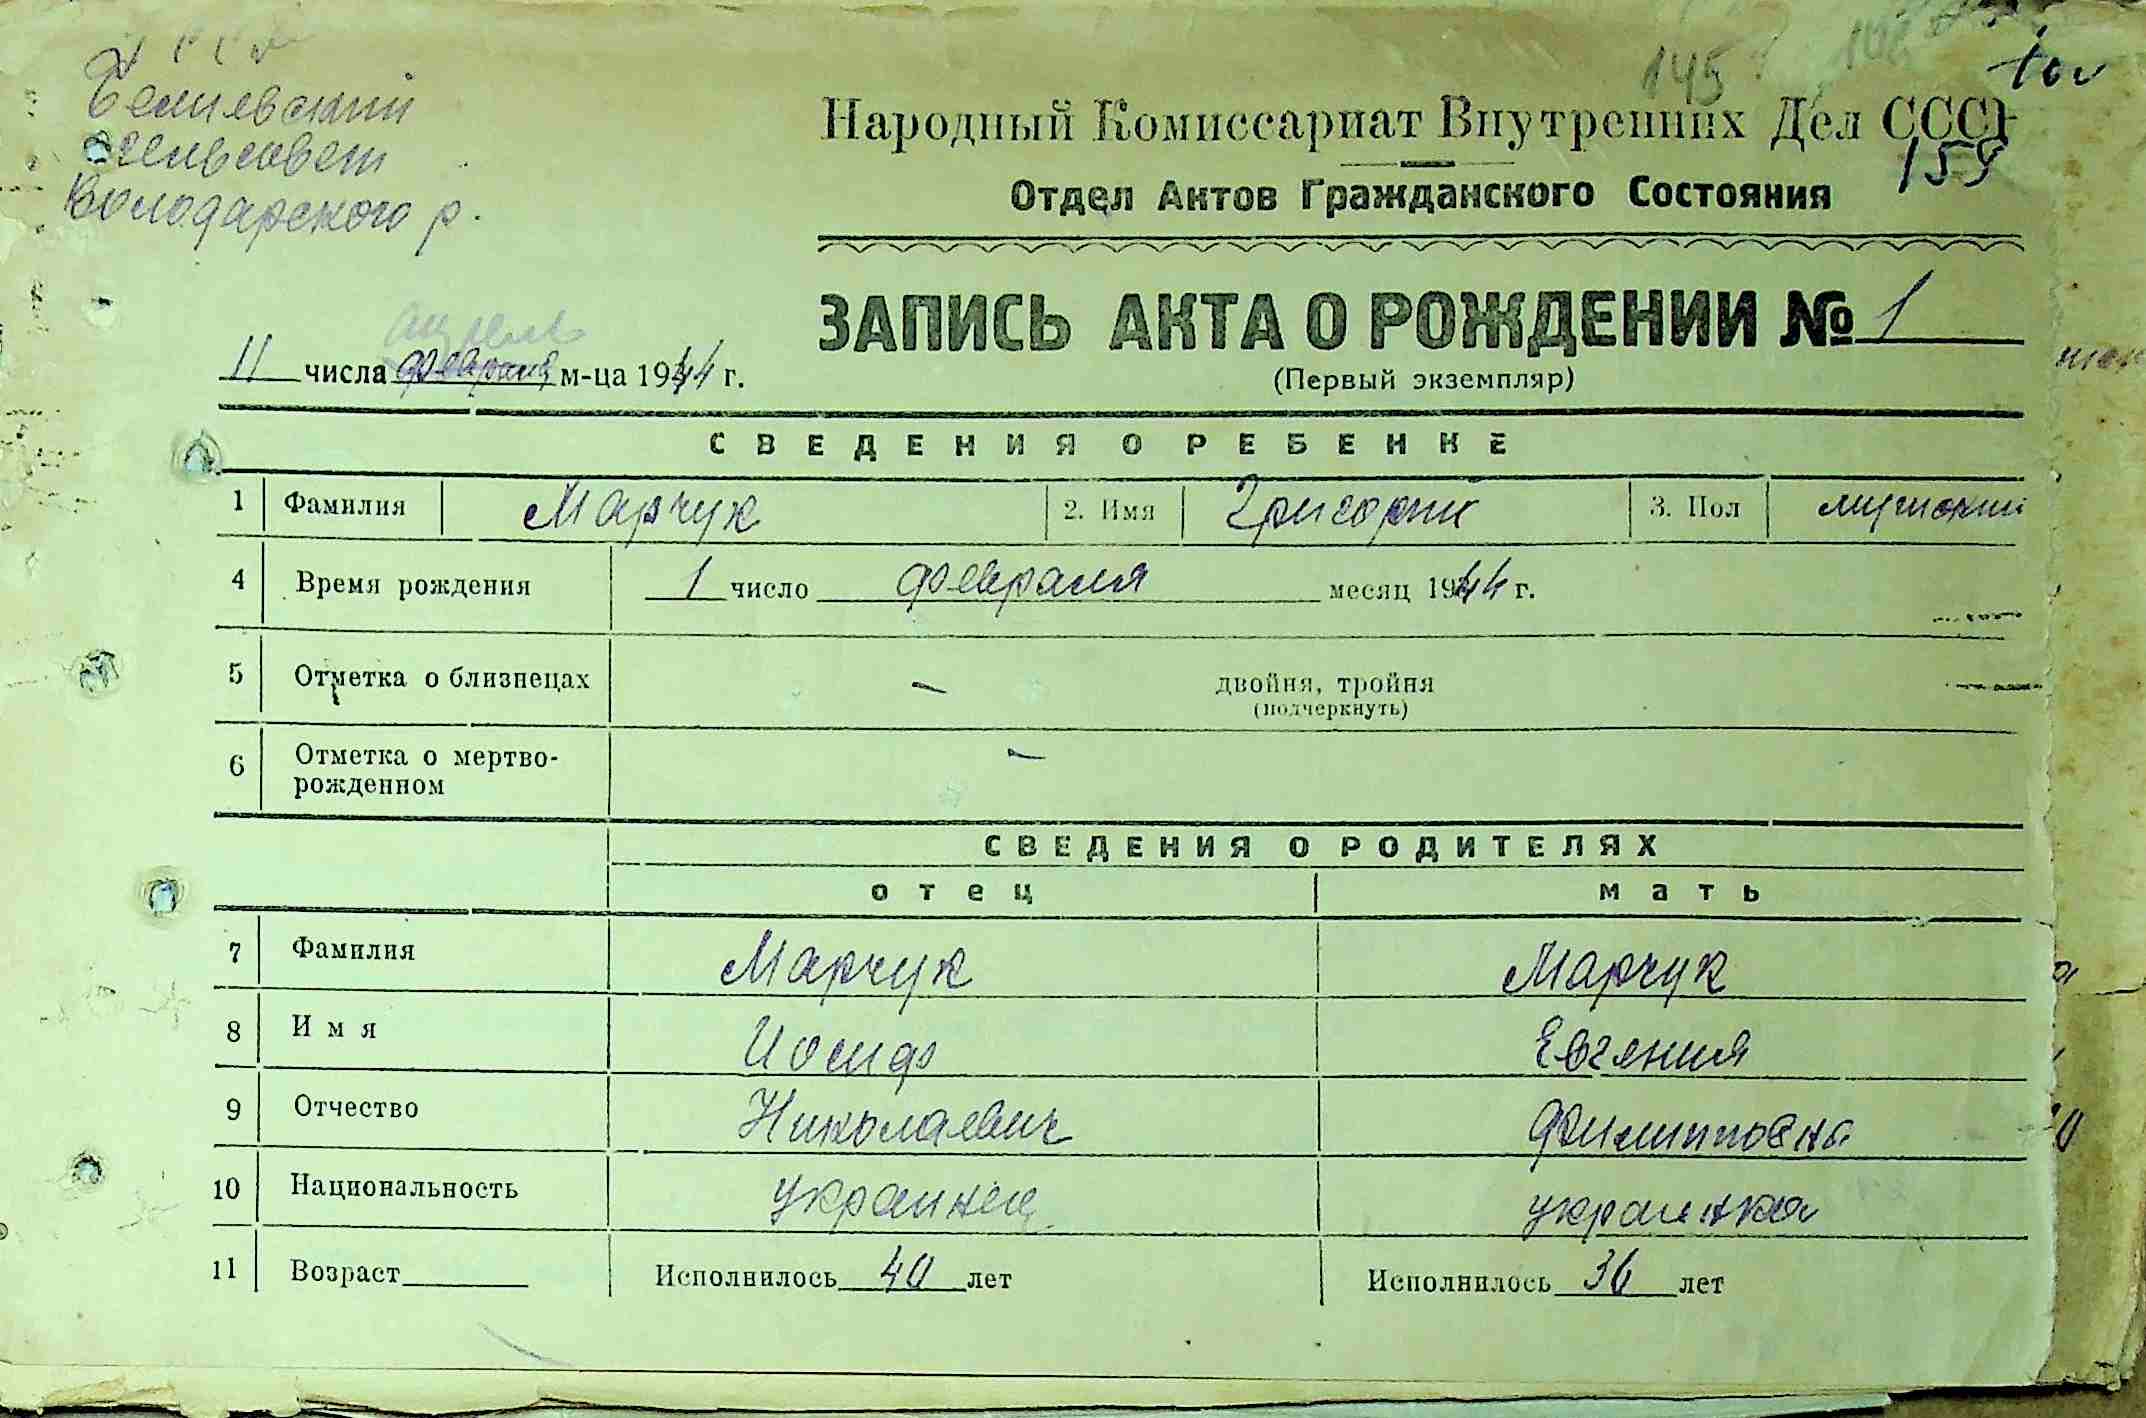 сельсовет
Володарского р.
145
155
Народный Комиссариат Внутренних Дел СССР
Отдел Актов Гражданского Состояния
ЗАПИСЬ АКТА О РОЖДЕНИИ № 1
(Первый экземпляр)
апрель
11 числа февраля м-ца 1944 г.
СВЕДЕНИЯ О РЕБЕНКЕ
1 Фамилия Марчук 2. Имя Григорий 3. Пол мужской
4 Время рождения 1 число февраля месяц 1944 г.
5 Отметка о близнецах – двойня, тройня
(подчеркнуть)
6 Отметка о мертво-
рожденном –
СВЕДЕНИЯ О РОДИТЕЛЯХ
отец мать
7 Фамилия Марчук Марчук
8 Имя Иосиф Евгения
9 Отчество Николаевич Филипповна
10 Национальность украинец украинка
11 Возраст Исполнилось 40 лет Исполнилось 36 лет